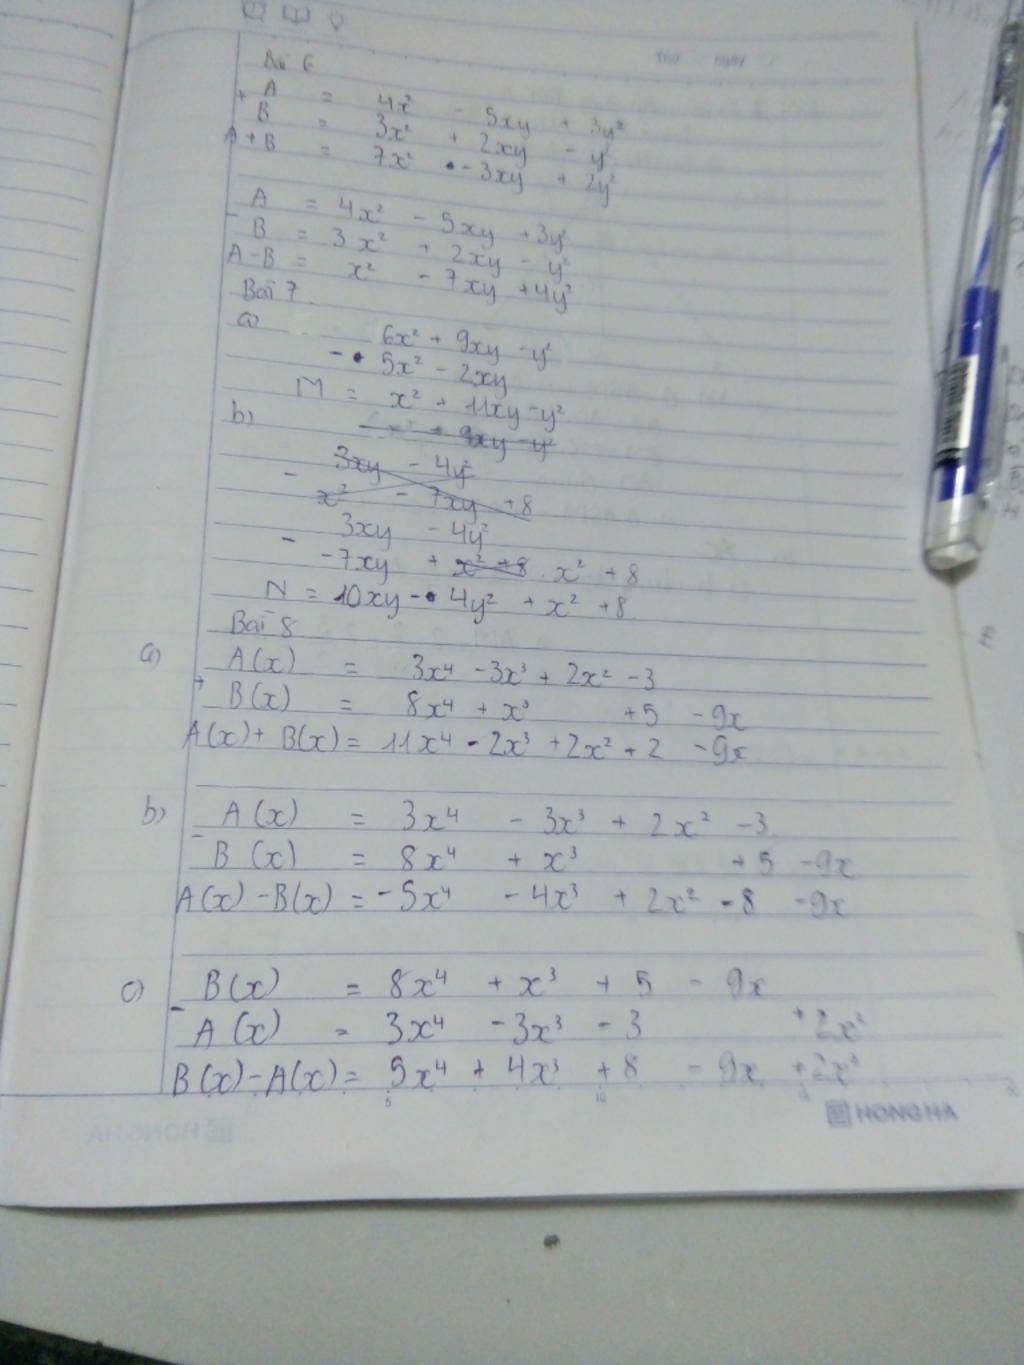 Bài 6
+ A = 4x² - 5xy + 3y²
B = 3x² + 2xy - y²
A + B = 7x² - 3xy + 2y²
A = 4x² - 5xy + 3y²
- B = 3x² + 2xy - y²
A - B = x² - 7xy + 4y²
Bài 7
a) 6x² + 9xy - y²
- 5x² - 2xy
M = x² + 11xy - y²
b)
9xy - y²
3xy - 4y²
- x² - 7xy + 8
3xy - 4y²
- -7xy + x² + 8 . x² + 8
N = 10xy - 4y² + x² + 8
Bài 8
a) A(x) = 3x⁴ - 3x³ + 2x² - 3
+ B(x) = 8x⁴ + x³ + 5 - 9x
A(x) + B(x) = 11x⁴ - 2x³ + 2x² + 2 - 9x
b) A(x) = 3x⁴ - 3x³ + 2x² - 3
- B(x) = 8x⁴ + x³ + 5 - 9x
A(x) - B(x) = -5x⁴ - 4x³ + 2x² - 8 - 9x
c) B(x) = 8x⁴ + x³ + 5 - 9x
- A(x) = 3x⁴ - 3x³ - 3 + 2x²
B(x) - A(x) = 5x⁴ + 4x³ + 8 - 9x + 2x²
HONG HA